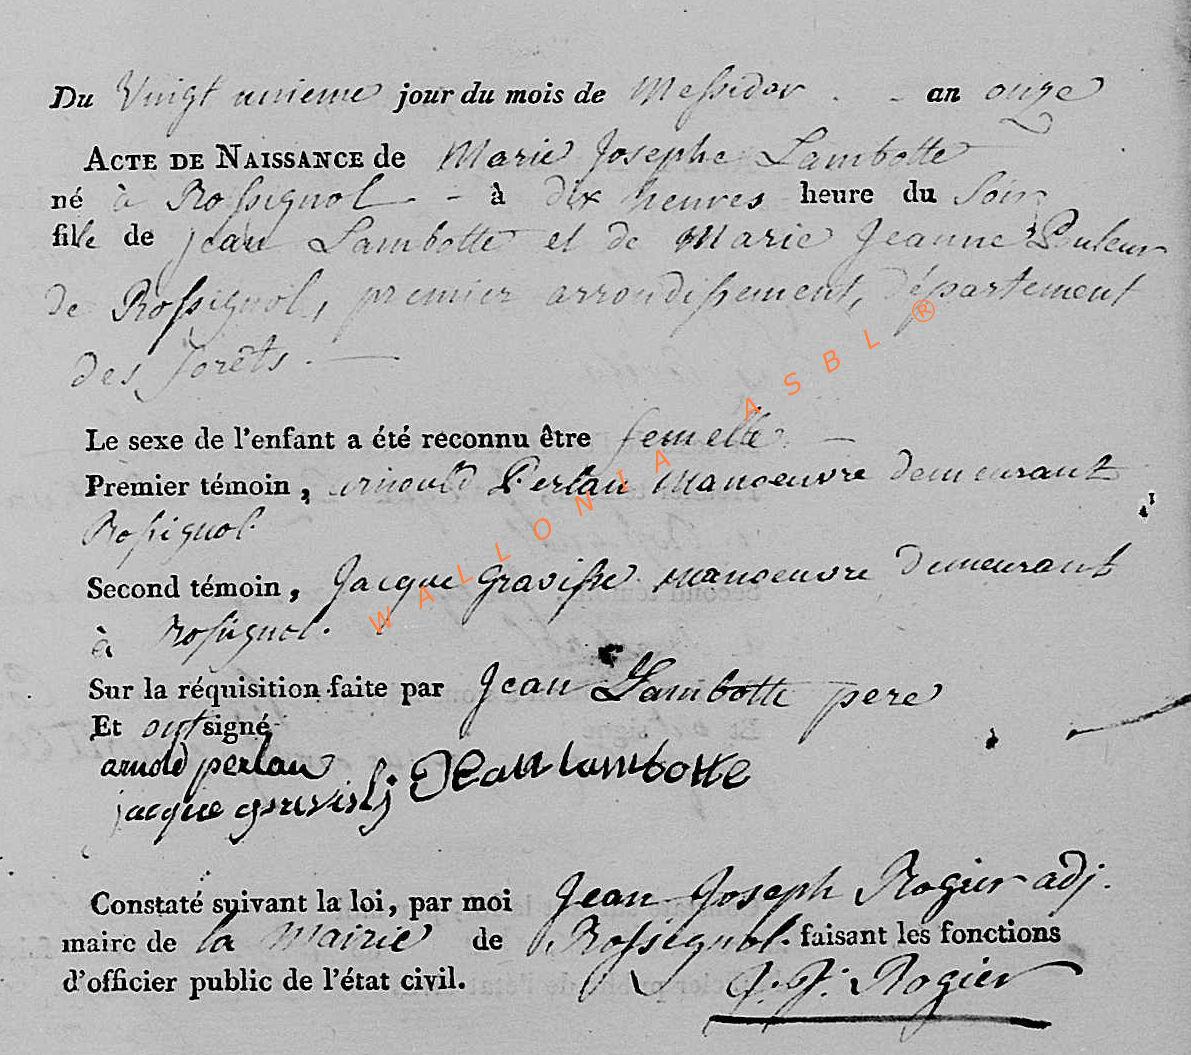 Du Vingt unieme jour du mois de Messidor . - an onze
ACTE DE NAISSANCE de Marie Josephe Lambotte
né à Rossignol - à dix heures heure du Soir
fille de jean Lambotte et de Marie Jeanne
de Rossignol, premier arrondissement, département
des forêts. —
Le sexe de l'enfant a été reconnu être femelle. —
Premier témoin, arnould Perlau manoeuvre demeurant
Rossignol.
Second témoin, Jacque Gravisse manoeuvre demeurant
à Rossignol.
Sur la réquisition faite par Jean Lambotte pere
Et ont signé
arnold perlau
jacque Jean lambotte
Constaté suivant la loi, par moi Jean Joseph Rogier adj.
maire de la Mairie de Rossignol. faisant les fonctions
d'officier public de l'état civil. J. J. Rogier
WALLONIA ASBL ®